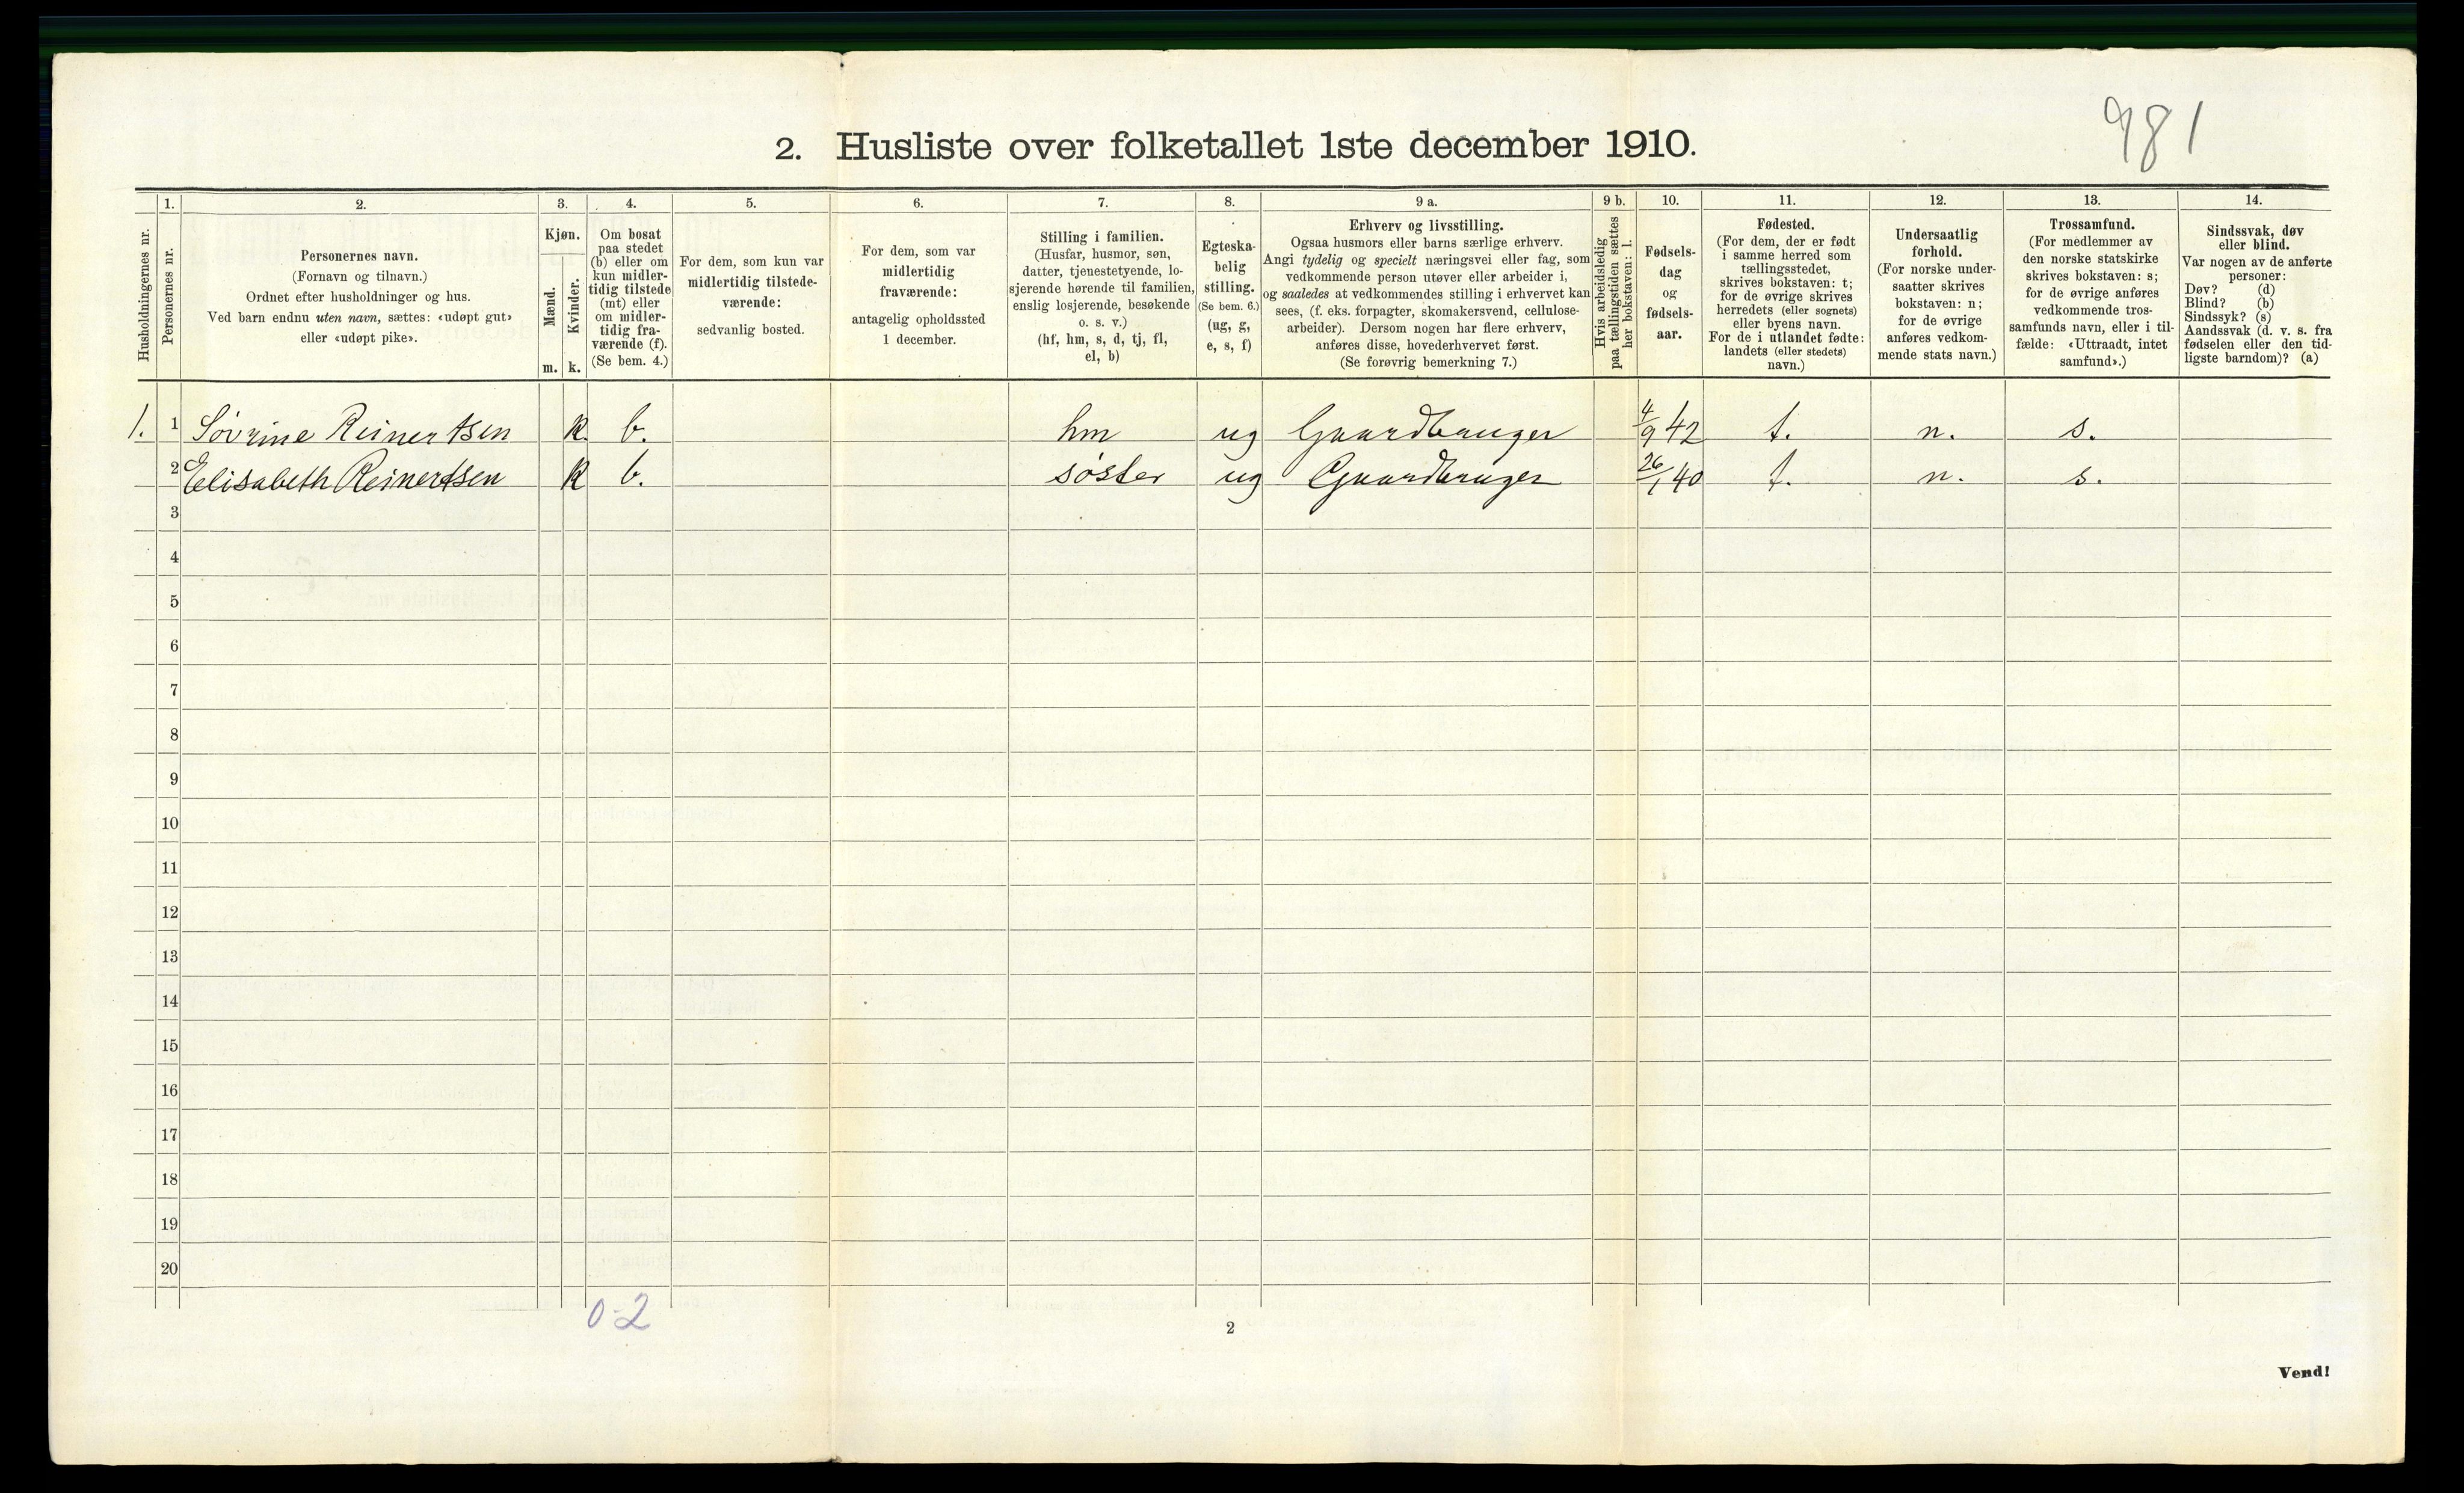 981
2. Husliste over folketallet 1ste december 1910.
Husholdningernes nr.
1.
Personernes nr.
2.
Personernes navn.
(Fornavn og tilnavn.)
Ordnet efter husholdninger og hus.
Ved barn endnu uten navn, sættes: «udøpt gut»
eller «udøpt pike».
3.
Kjøn.
Mænd.
Kvinder.
m. k.
4.
Om bosat
paa stedet
(b) eller om
kun midler-
tidig tilstede
(mt) eller
om midler-
tidig fra-
værende (f).
(Se bem. 4.)
5.
For dem, som kun var
midlertidig tilstede-
værende:
sedvanlig bosted.
6.
For dem, som var
midlertidig
fraværende:
antagelig opholdssted
1 december.
7.
Stilling i familien.
(Husfar, husmor, søn,
datter, tjenestetyende, lo-
sjerende hørende til familien,
enslig losjerende, besøkende
o. s. v.)
(hf, hm, s, d, tj, fl,
el, b)
8.
Egteska-
belig
stilling.
(Se bem. 6.)
(ug, g,
e, s, f)
9 a.
Erhverv og livsstilling.
Ogsaa husmors eller barns særlige erhverv.
Angi tydelig og specielt næringsvei eller fag, som
vedkommende person utøver eller arbeider i,
og saaledes at vedkommendes stilling i erhvervet kan
sees, (f. eks. forpagter, skomakersvend, cellulose-
arbeider). Dersom nogen har flere erhverv,
anføres disse, hovederhvervet først.
(Se forøvrig bemerkning 7.)
9 b.
Hvis arbeidsledig
paa tællingstiden sættes
her bokstaven: l.
10.
Fødsels-
dag
og
fødsels-
aar.
11.
Fødested.
(For dem, der er født
i samme herred som
tællingsstedet,
skrives bokstaven: t;
for de øvrige skrives
herredets (eller sognets)
eller byens navn.
For de i utlandet fødte:
landets (eller stedets)
navn.)
12.
Undersaatlig
forhold.
(For norske under-
saatter skrives
bokstaven: n;
for de øvrige
anføres vedkom-
mende stats navn.)
13.
Trossamfund.
(For medlemmer av
den norske statskirke
skrives bokstaven: s;
for de øvrige anføres
vedkommende tros-
samfunds navn, eller i til-
fælde: «Uttraadt, intet
samfund».)
14.
Sindssvak, døv
eller blind.
Var nogen av de anførte
personer:
Døv? (d)
Blind? (b)
Sindssyk? (s)
Aandssvak (d. v. s. fra
fødselen eller den tid-
ligste barndom)? (a)
1. 1 Sövrine Reinertsen k. b. hm ug Gaardbruger 4/9 42 t. n. s.
2 Elisabeth Reinertsen k b. søster ug Gaardbruger 26/1 40 t. n. s.
3
4
5
6
7
8
9
10
11
12
13
14
15
16
17
18
19
20
0-2
2
Vend!